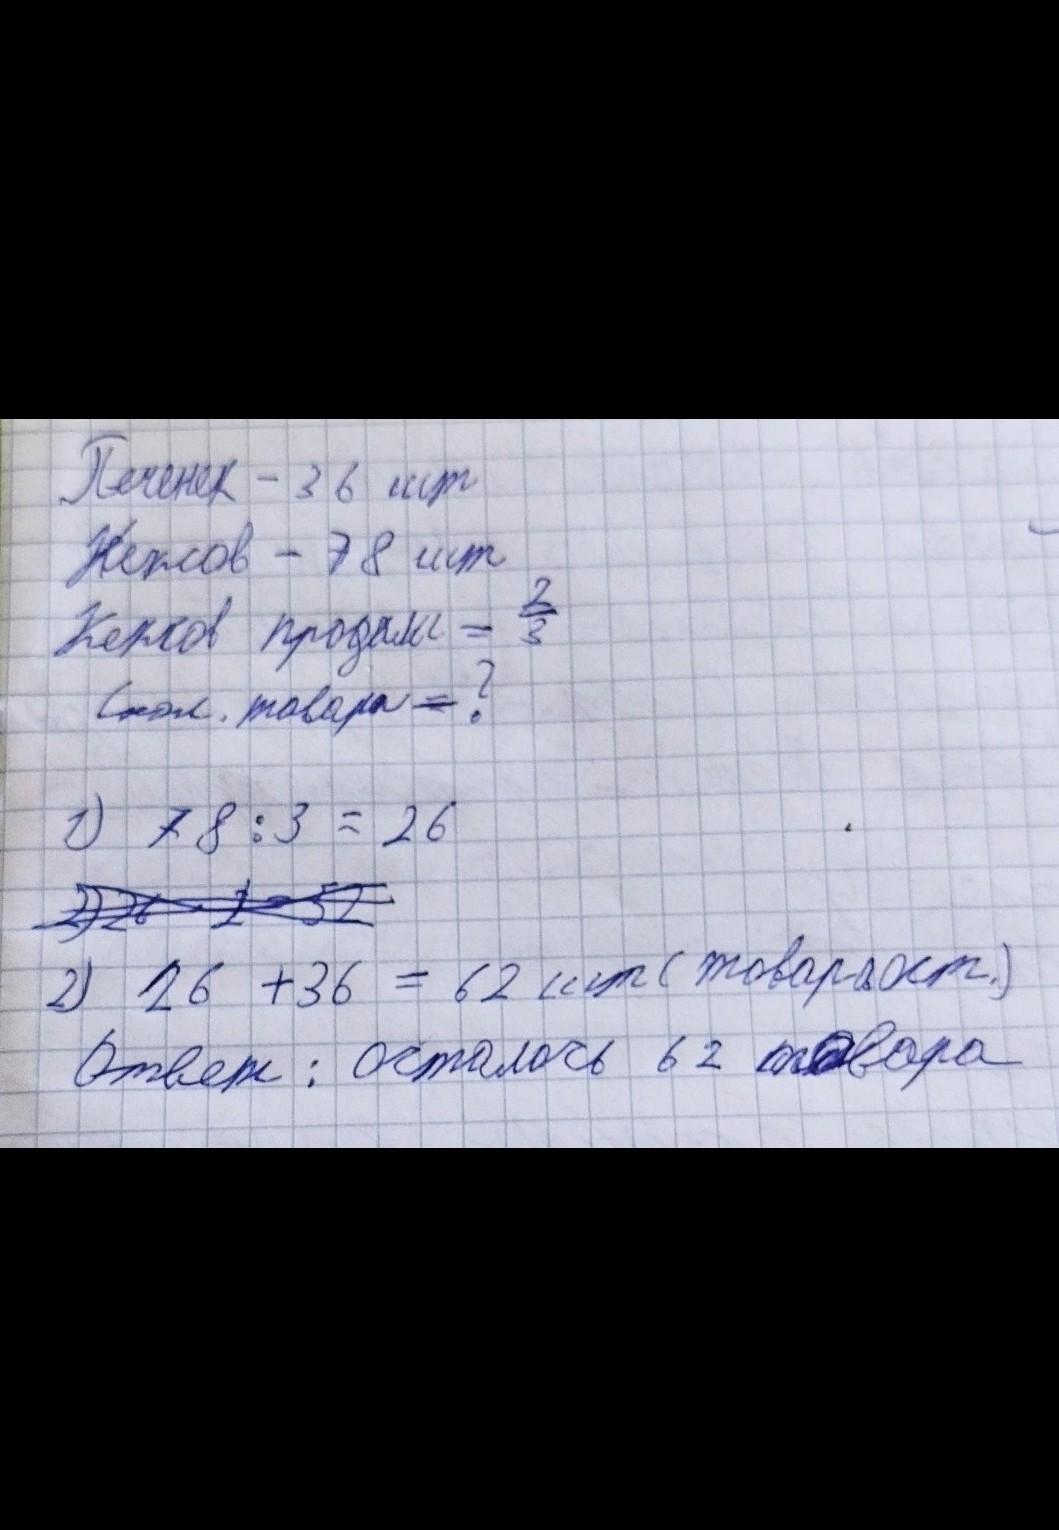 Печенек - 36 шт
Кексов - 78 шт
Кексов продали = 2/3
Скол. товара = ?
1) 78 : 3 = 26
2) 26 · 2 = 52
2) 26 + 36 = 62 шт (товара ост.)
Ответ: осталось 62 товара